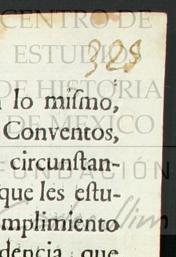 CENTRO DE
ESTUDIOS
325
DE HISTORIA
DE MEXICO
lo miſmo,
Conventos,
circunſtan-
FUNDACIÓN
que les eſtu-
mplimiento
dencia, que